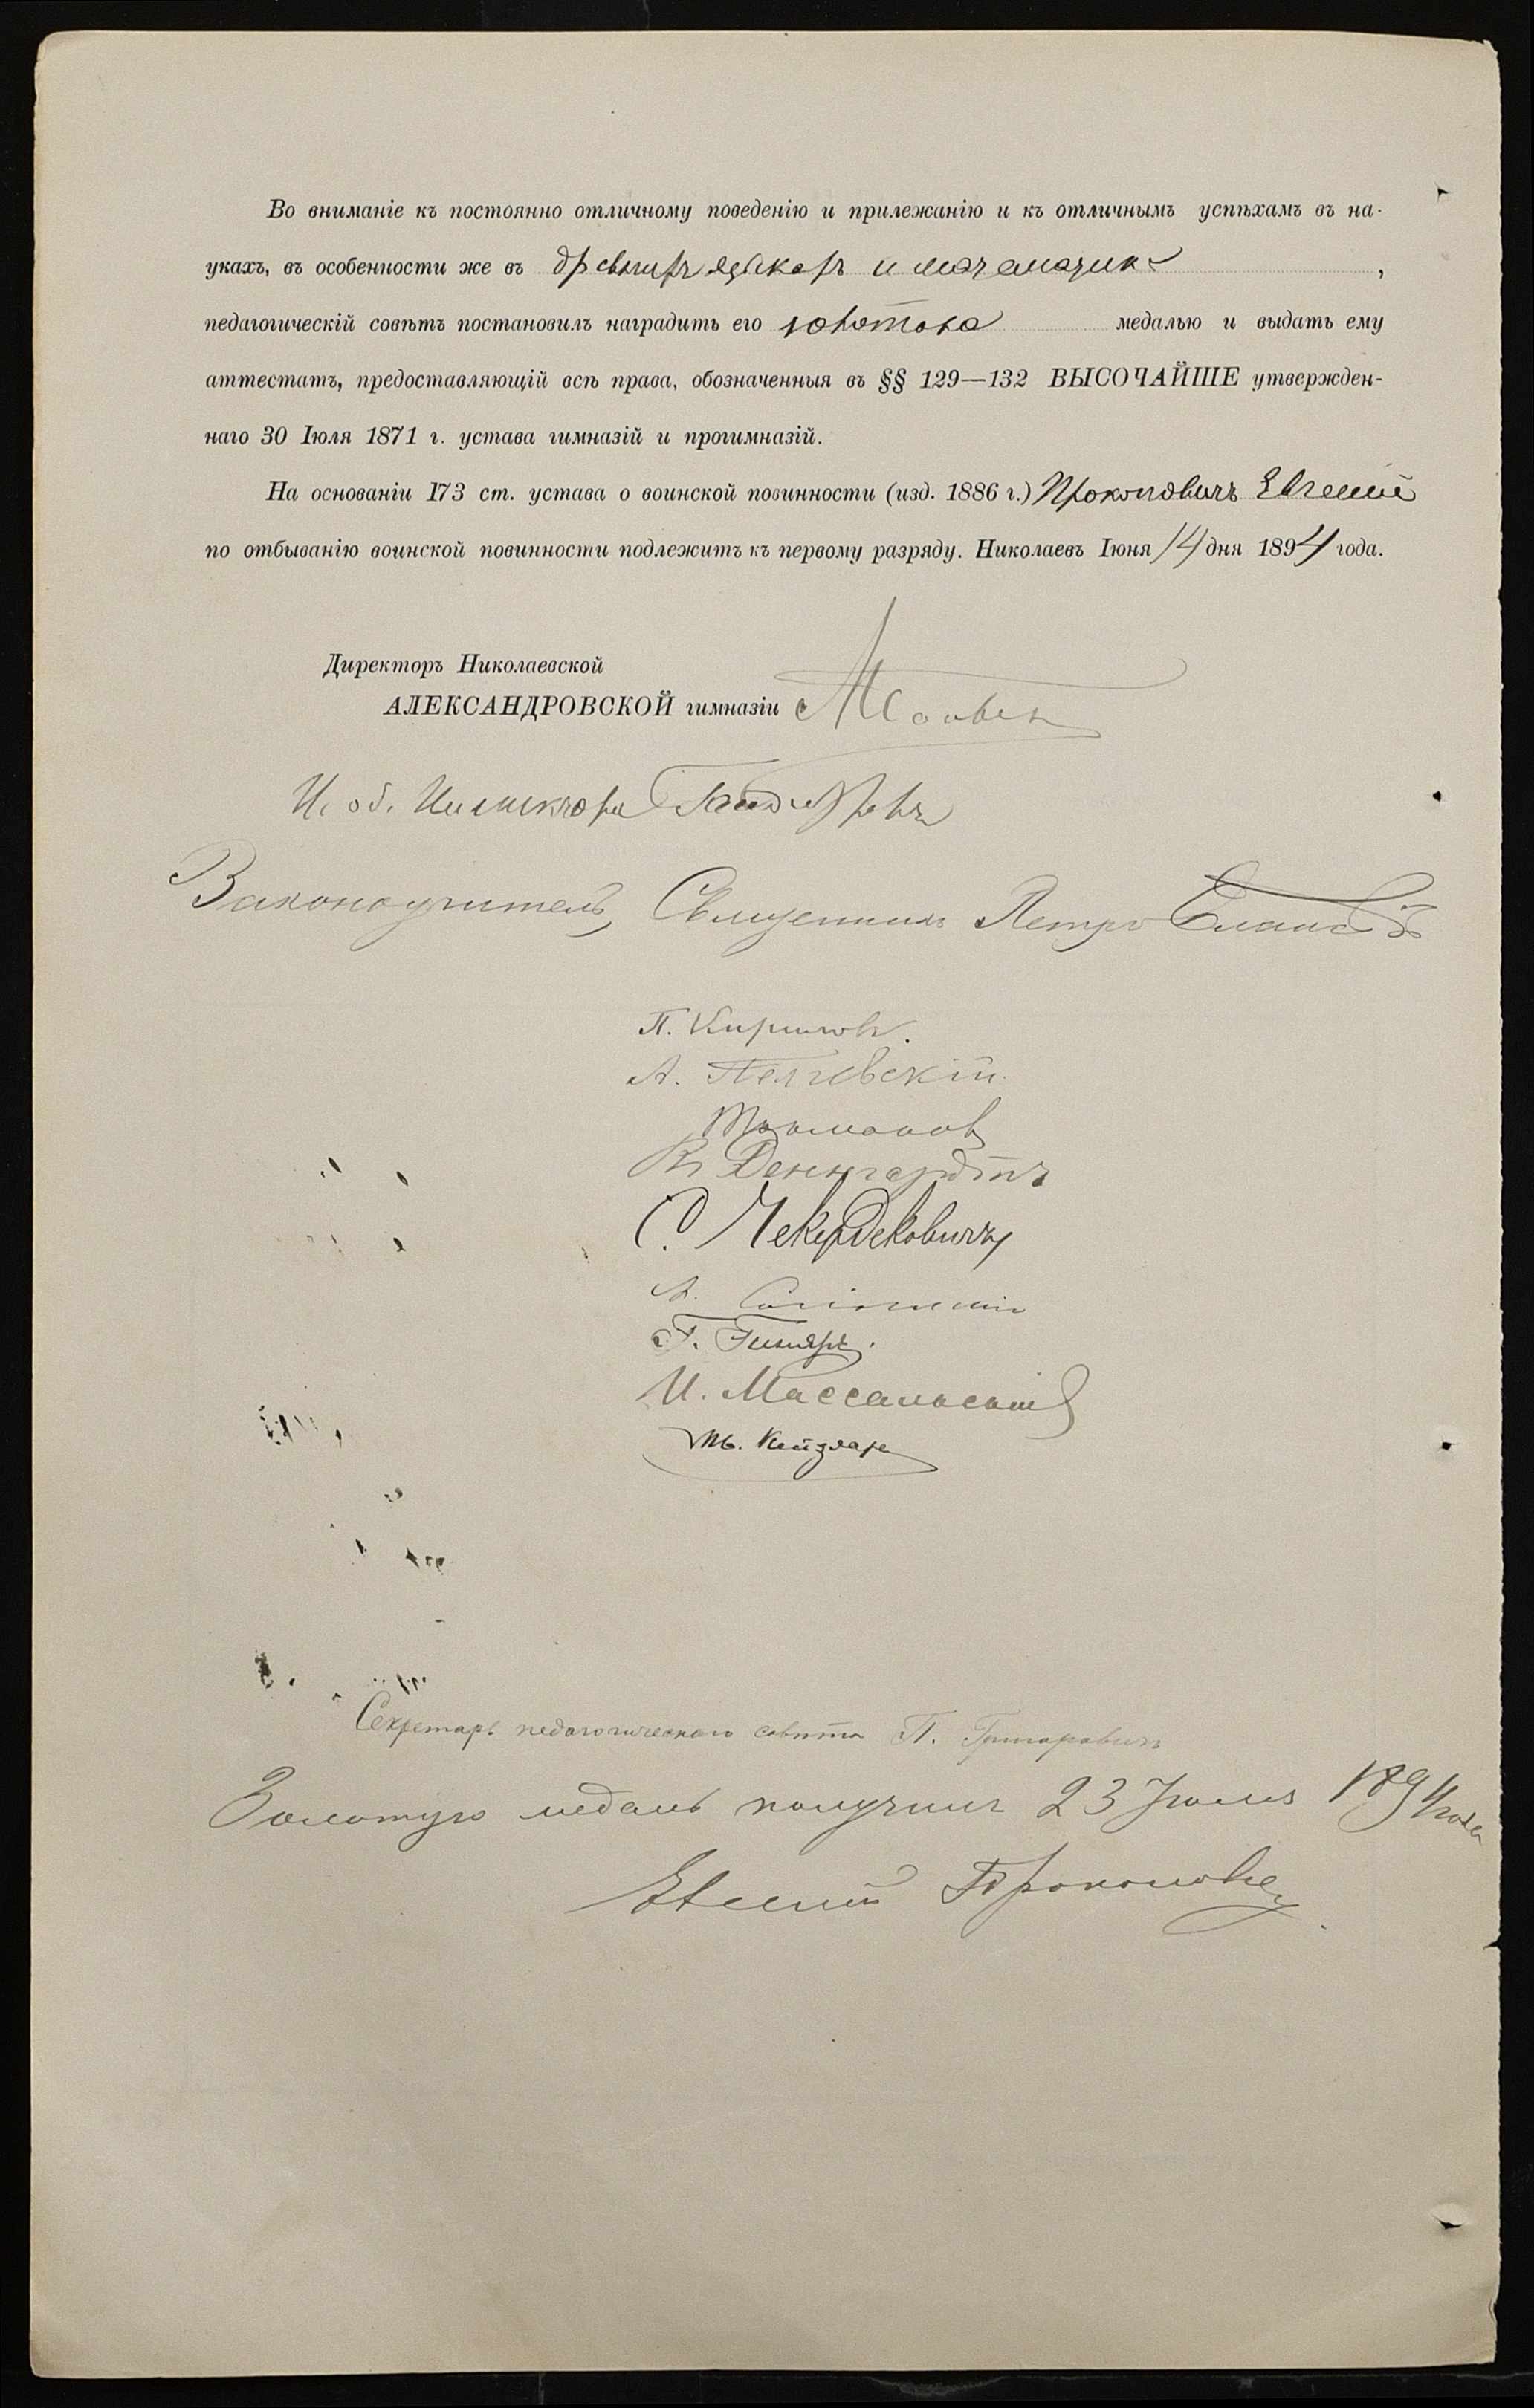 Во вниманіе къ постоянно отличному поведенію и прилежанію и къ отличнымъ успѣхамъ въ на-
укахъ, въ особенности же въ древнихъ языкахъ и математикѣ,
педагогическій совѣтъ постановилъ наградить его золотою медалью и выдать ему
аттестатъ, предоставляющій всѣ права, обозначенныя въ §§ 129—132 ВЫСОЧАЙШЕ утвержден-
наго 30 Іюля 1871 г. устава гимназій и прогимназій.
На основаніи 173 ст. устава о воинской повинности (изд. 1886 г.) Прокоповичъ Евгеній
по отбыванію воинской повинности подлежитъ къ первому разряду. Николаевъ Іюня 14 дня 1894 года.
Директоръ Николаевской
АЛЕКСАНДРОВСКОЙ гимназіи
И. об. Инспектора
Законоучитель, Священникъ Петръ
П. Кириловъ.
А.
В. Деннгардтъ
С. Чекердековичъ
А.
Г.
И. Массальскій
Секретарь педагогическаго совѣта П. Григоровичъ
Золотую медаль получилъ 23 Іюля 1894 года
Евгеній Прокоповичъ